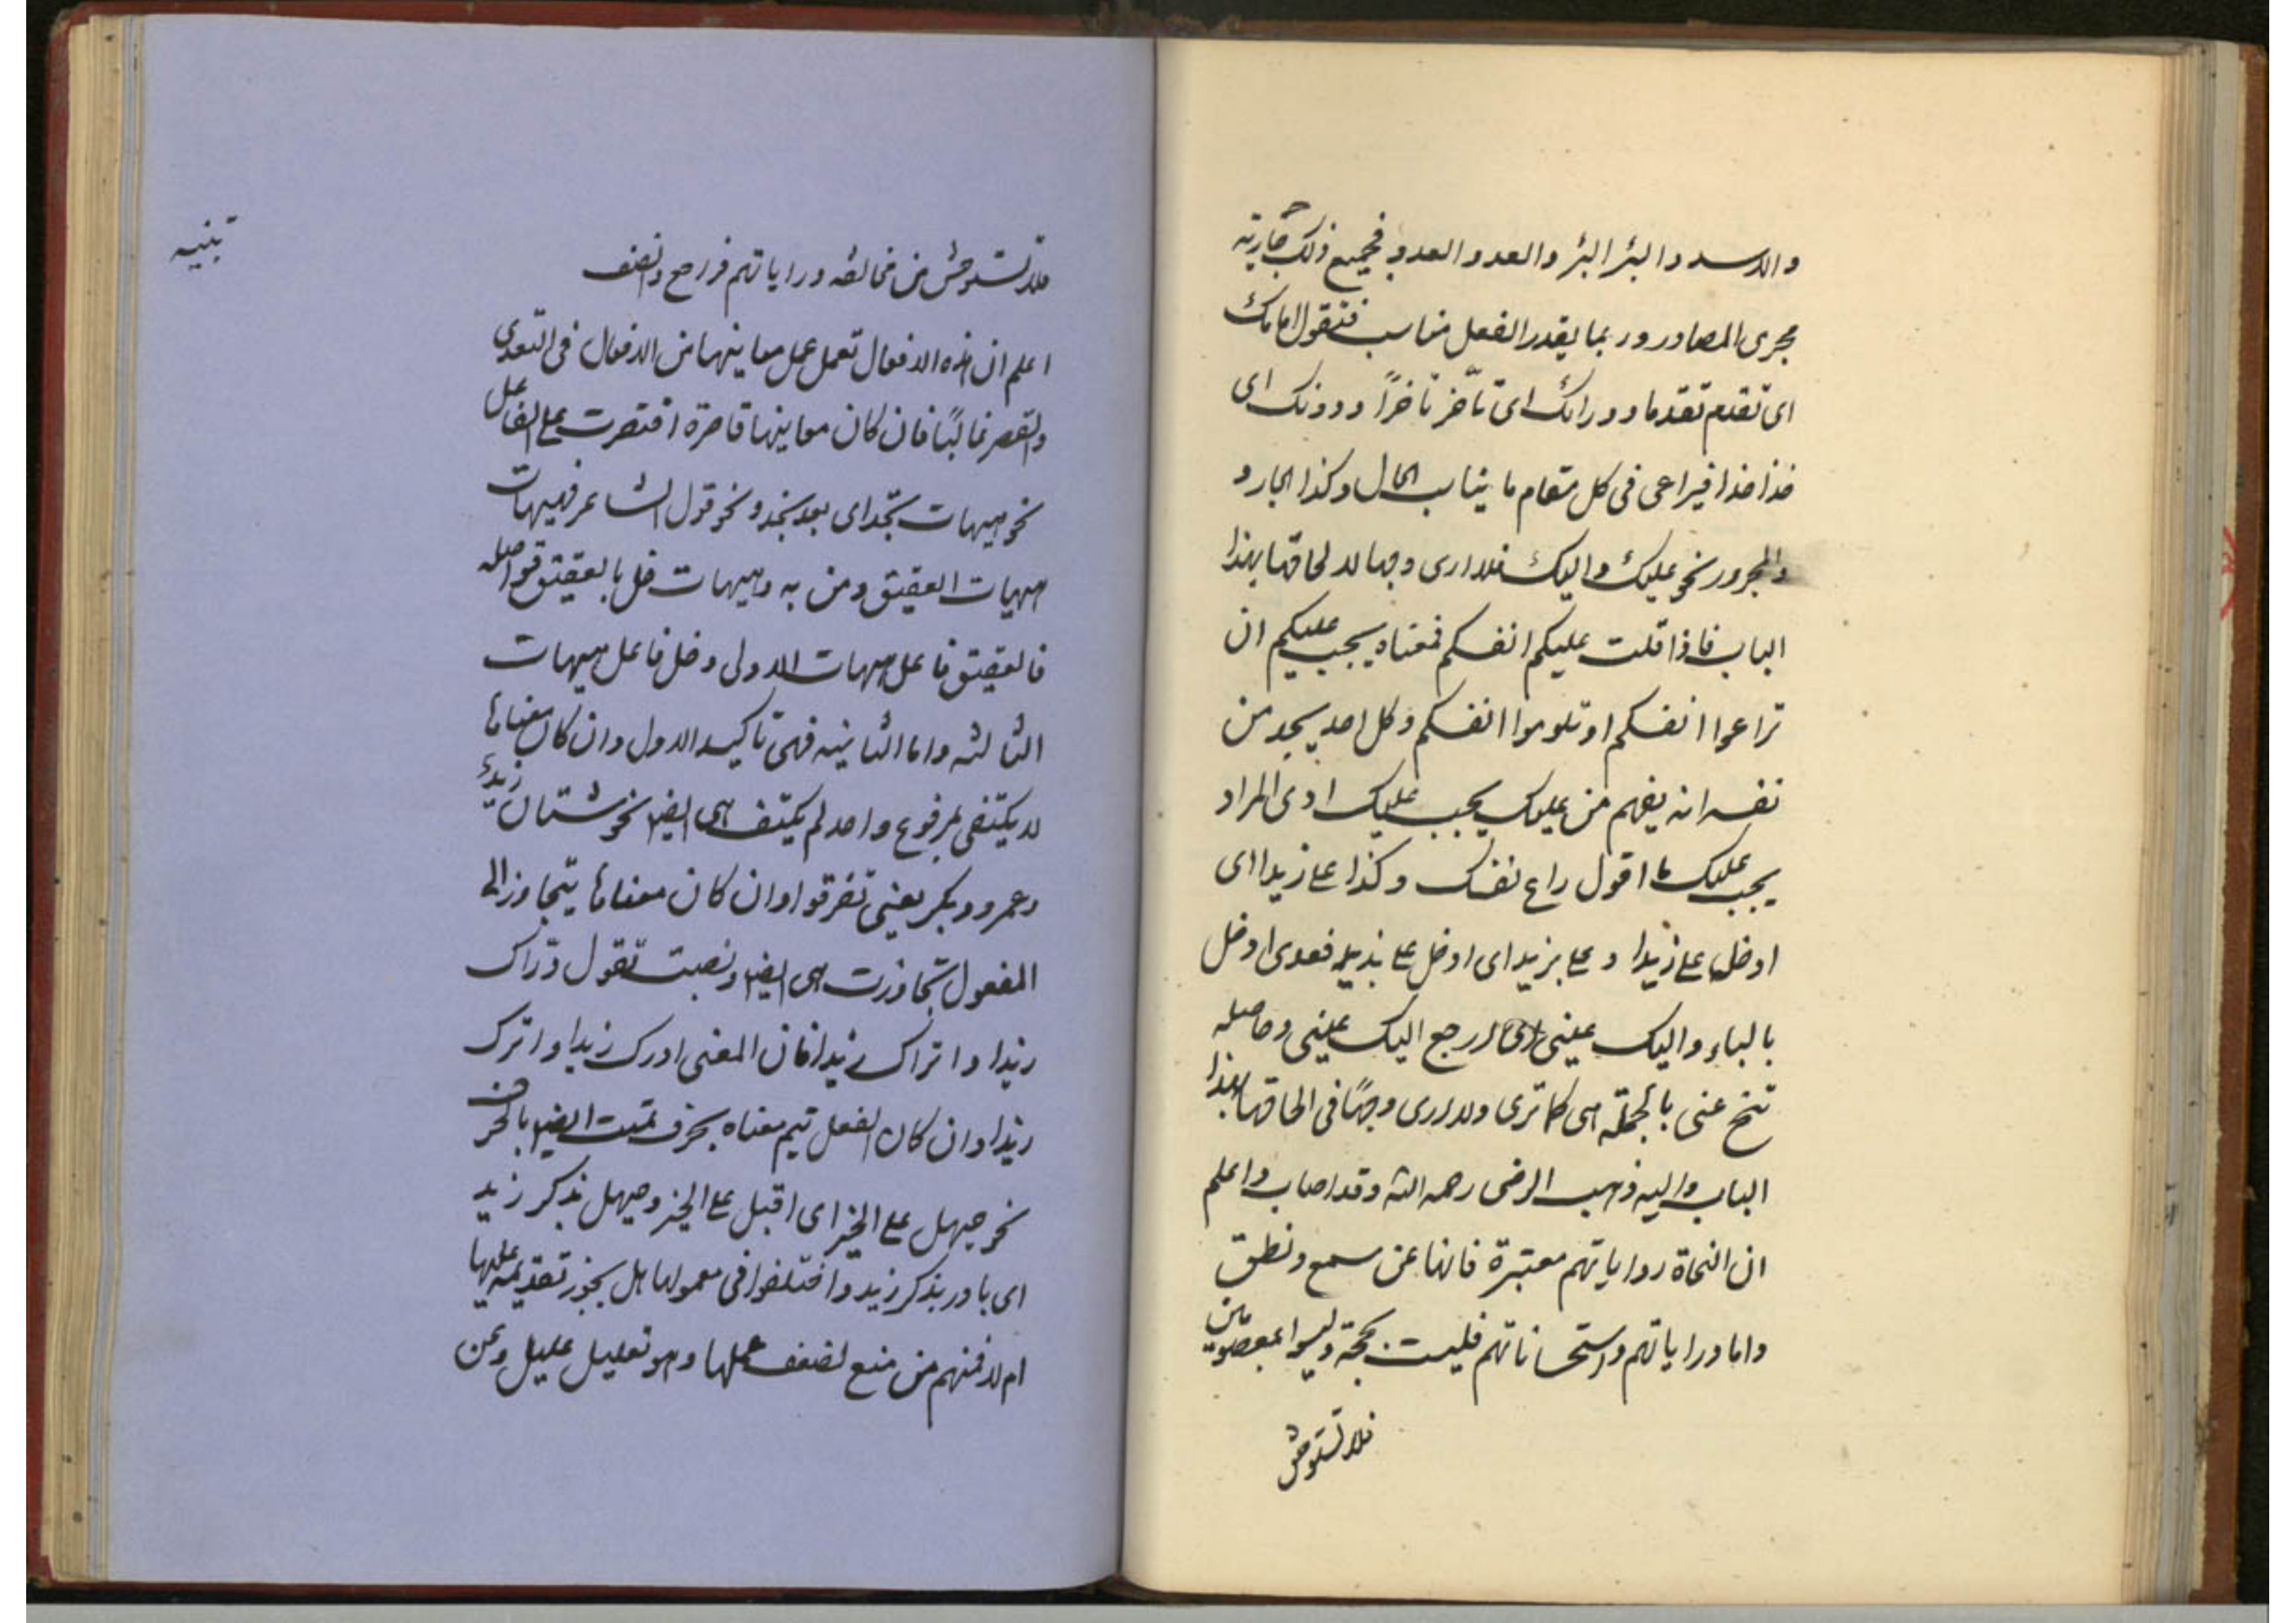 والاسد والبئر البئر والعدو العدو فجميع ذلك جارية
مجرى المصادر وربما يقدر الفعل مناسب فتقول امامك
اى تقدم تقدما وورائك اى تأخر تأخراً ودونك اى
خذا خذا فيراعى فى كل مقام ما يناسب الحال وكذا الجار و
والمجرور نحو عليك واليك فلا ادرى وجها لالحاقها بهذا
الباب فاذا قلت عليكم انفسكم فمعناه يجب عليكم ان
تراعوا انفسكم او تلوموا انفسكم وكل احد يجد من
نفسه انه يفهم من عليك يجب عليك ادى المراد
يجب عليك ما اقول راع نفسك وكذا على زيدا اى
ادخل على زيدا و على بزيد اى ادخل على بزيد فعدى ادخل
بالباء واليك عينى اى ارجع اليك عينى وحاصله
تنح عنى بالجملة هى كما ترى ولا ادرى وجهاً فى الحاقها بهذا
الباب واليه ذهب الرضى رحمه الله وقد اصاب واعلم
ان النحاة رواياتهم معتبرة فانها عن سمع ونطق
واما دراياتهم واستحساناتهم فليست بحجة وليسوا بمعصومين
فلا تستوحش
تنبيه
فلا تستوحش من مخالفة دراياتهم فارجع وانصف
اعلم ان هذه الافعال تعمل عمل معاينها من الافعال فى التعدى
والقصر غالبًا فان كان معاينها قاصرة اقتصرت على الفاعل
نحو هيهات نجد اى بعد نجد ونحو قول الشاعر فهيهات
هيهات العقيق ومن به وهيهات خل بالعقيق نواصله
فالعقيق فاعل هيهات الاولى وخل فاعل هيهات
الثالثه واما الثانيه فهى تاكيد الاول وان كان معناها
لا يكتفى بمرفوع واحد لم يكتف هى ايضا نحو شتان زيد
وعمرو وبكر يعنى تفرقوا وان كان معناها يتجاوز الى
المفعول تجاوزت هى ايضا ونصبت تقول دراك
زيدا و اتراك زيدا فان المعنى ادرك زيدا و اترك
زيدا وان كان الفعل تيم معناه بحرف تمت ايضا بالحرف
نحو حيهل على الخير اى اقبل على الخير وحيهل بذكر زيد
اى بادر بذكر زيد واختلفوا فى معمولها هل يجوز تقديمه عليها
ام لا فمنهم من منع لضعف عملها وهو تعليل عليل ومن